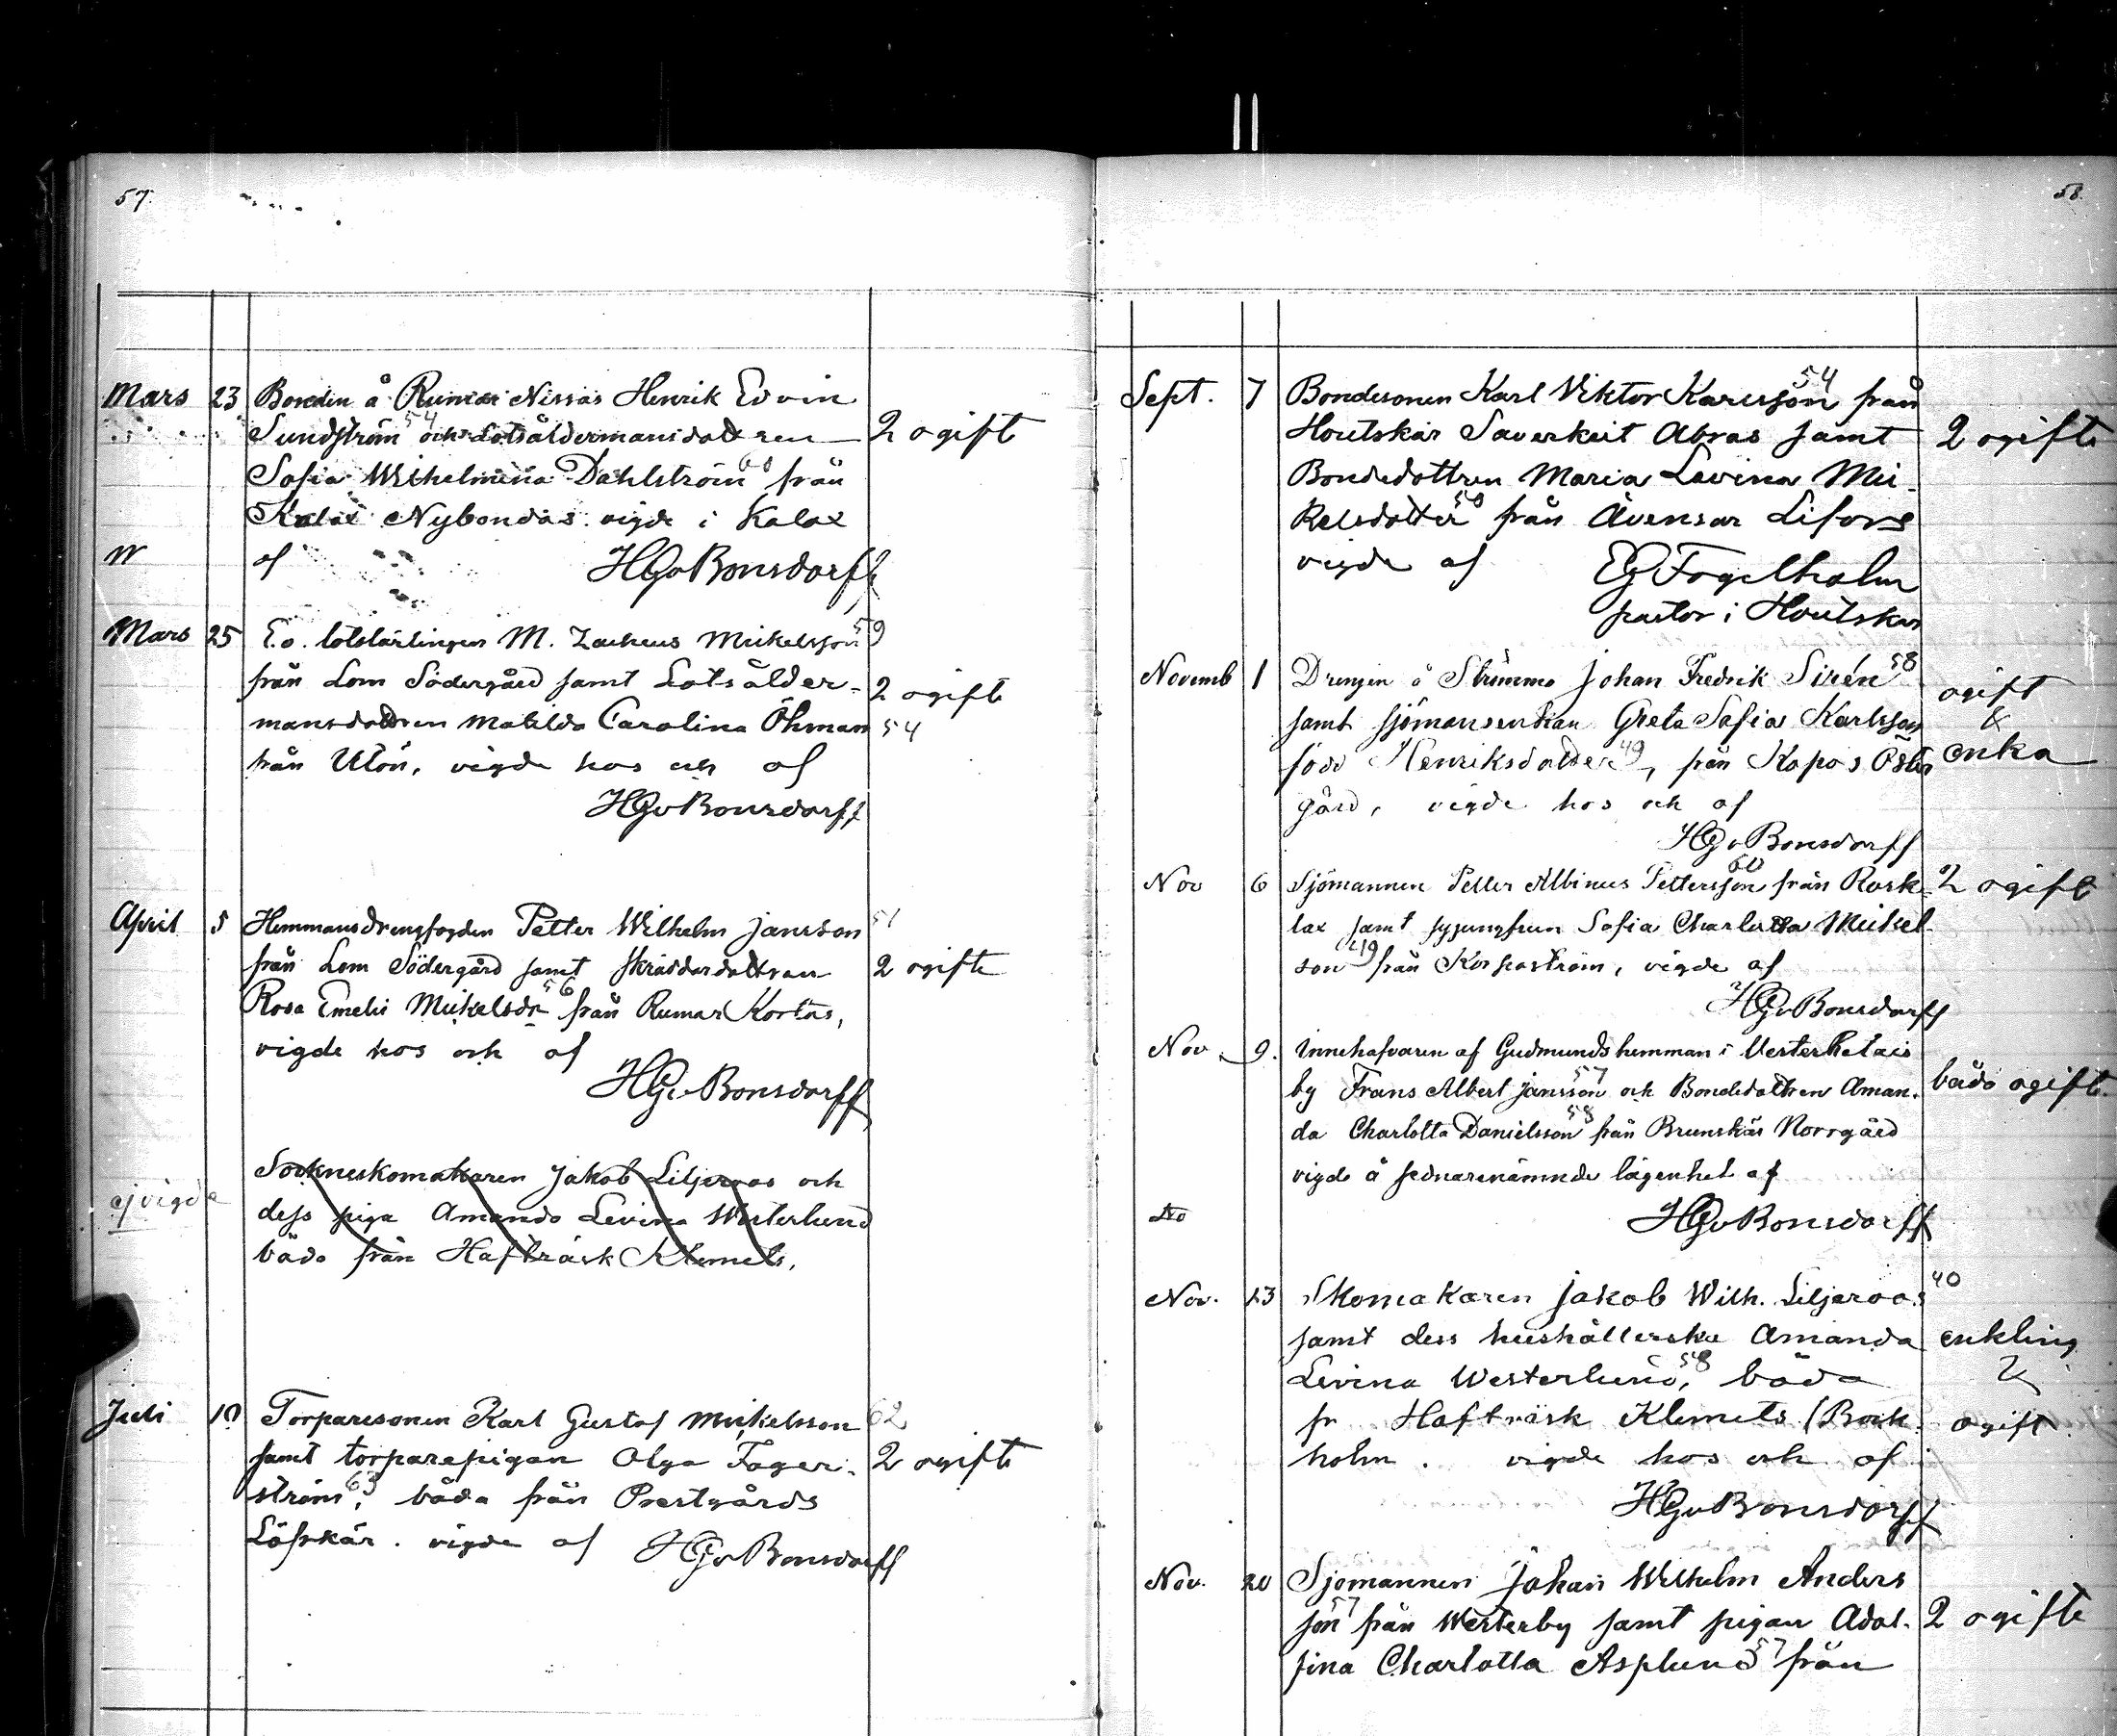 57.
Mars 23 Bonden å Rumar Nissas Henrik Edvin
Sundström 54 och Lotsåldermansdottren 2 ogift
Sofia Wilhelmina Dahlström 60 från
Kalax Nybondas vigde i Kalax
af HGvBonsdorff
Mars 25 E.o. lotslärlingen M. Zacheus Mickelsson 59
från Lom Södergård samt Lotsålder- 2 ogifte
mansdottren Matilda Carolina Öhman 54
från Utön, vigde hos och af
HGvBonsdorff
April 5 Hemmansdrengfogden Petter Wilhelm Jansson 51
från Lom Södergård samt skräddardottran 2 ogifte
Rosa Emelie Mickelsdr 56 från Rumar Kortas,
vigde hos och af
HGvBonsdorff
ej vigde
Sockneskomakaren Jakob Liljeroos och
dess piga Amanda Levina Westerlund
båda från Hafträsk Klemets.
Juli 10 Torparesonen Karl Gustaf Mickelsson 62
samt torparepigan Olga Fager- 2 ogifte
ström 63, båda från Prestgårds
Löfskär. vigde af HGvBonsdorff
58.
Sept. 7 Bondesonen Karl Viktor Karlsson 54 från
Houtskär Saverkeit Abras samt 2 ogifte
Bondedottren Maria Levina Mi-
kelsdotter 58 från Åvensar Lifors
vigde af EG Fogelholm
pastor i Houtskär
Novemb 1 Drengen å Strömma Johan Fredrik Sirén 58 ogift
samt sjömansenkan Greta Sofia Karlsson &
född Henriksdotter 49, från Kopos Öster enka
gård, vigde hos och af
HGvBonsdorff
Nov 6 Sjömannen Petter Albinus Pettersson 60 från Rosk- 2 ogift
lax samt syjungfrun Sofia Charlotta Mickel-
son 49 från Korpoström, vigde af
HGvBonsdorff
Nov. 9. Innehafvaren af Gudmunds hemman i Vesterretais
by Frans Albert Jansson 57 och Bondedottren Aman- båda ogifte.
da Charlotta Danielsson 58 från Brunskär Norrgård
vigde å sednarenämnde lägenhet af
HGvBonsdorff
Nov. 13 Skomakaren Jakob Wilh. Liljeroos 40
samt dess hushållerska Amanda enkling
Levina Westerlund, 58 båda &
fr Hafträsk Klemets (Bock- ogift.
holm. vigde hos och af
HGvBonsdorff
Nov. 20 Sjömannen Johan Wilhelm Anders
son 57 från Westerby samt pigan Adol- 2 ogifte
fina Charlotta Asplund 57 från